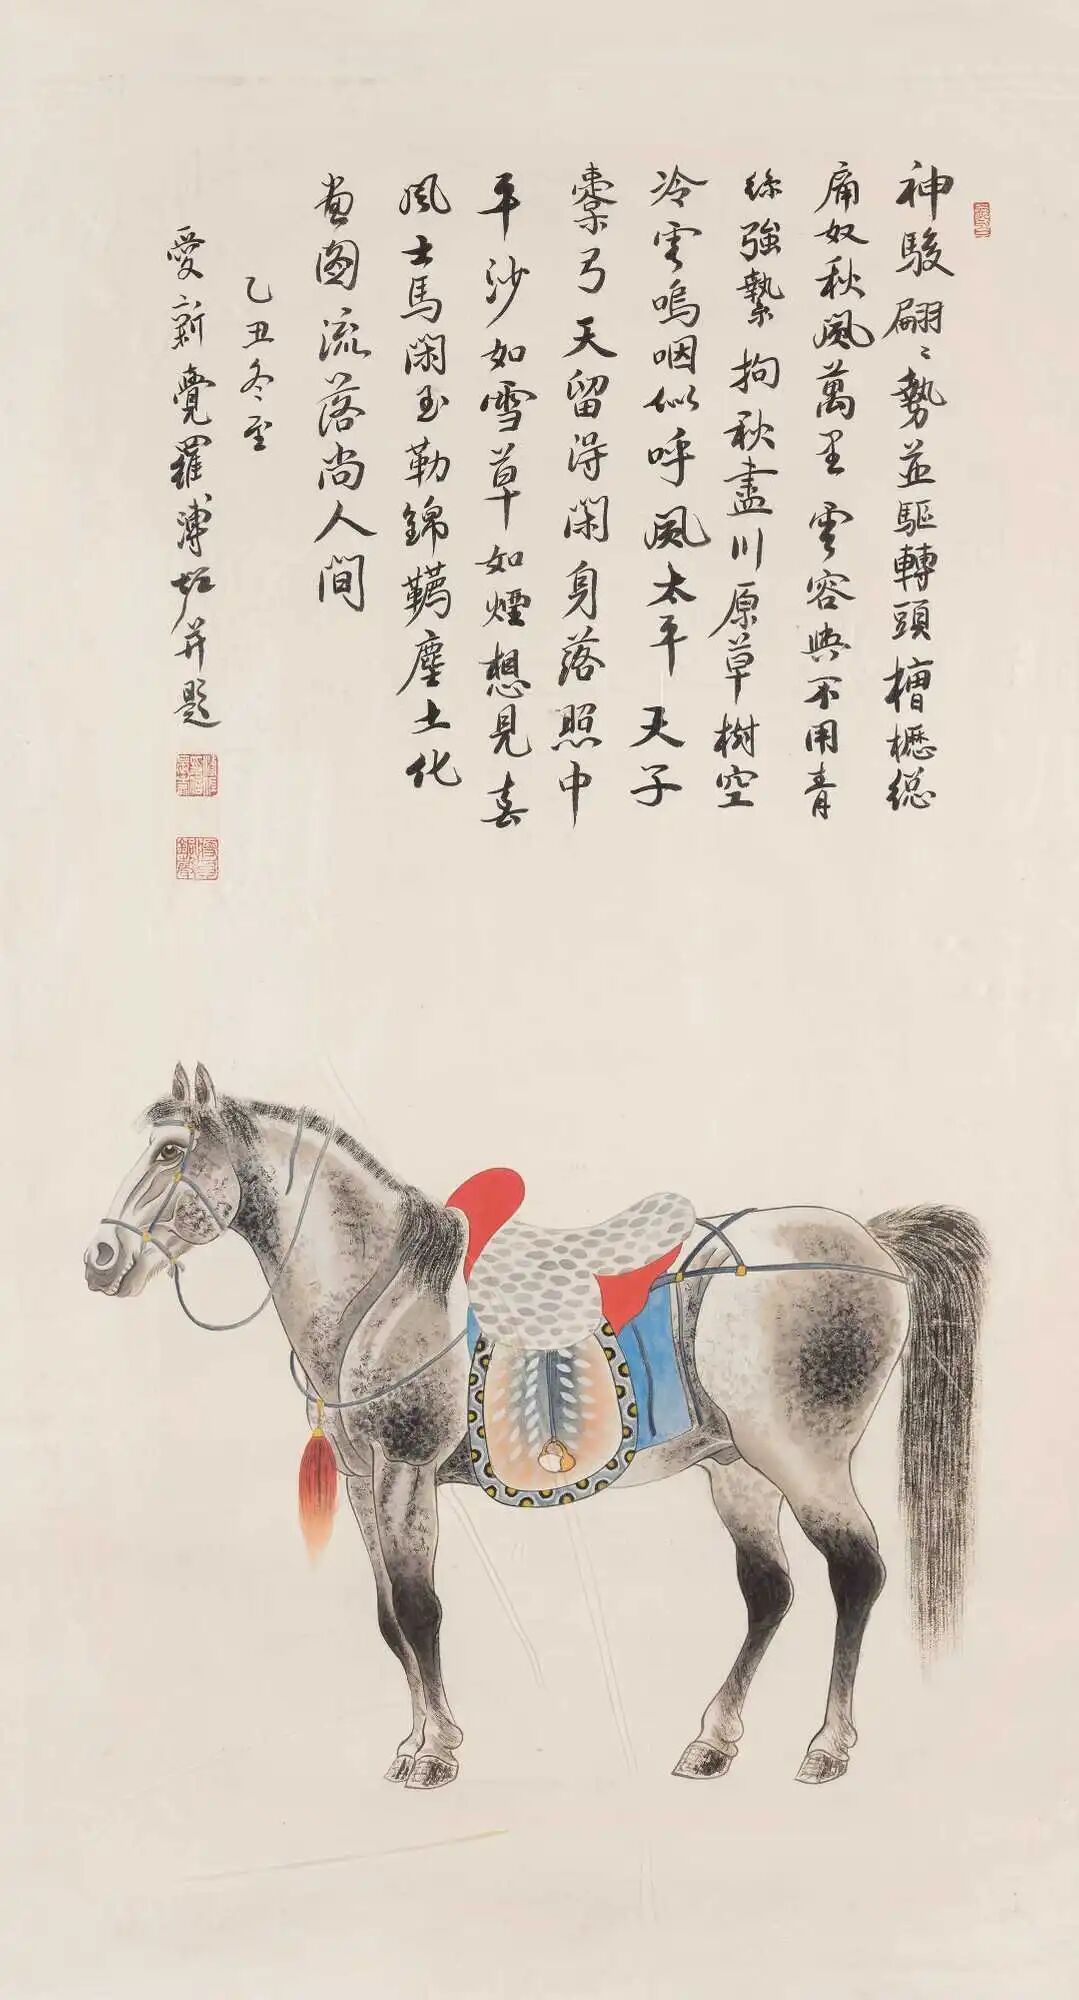 神駿翩〻勢並驅轉頭槽櫪總
庸奴秋風萬里雲容與不用青
絲強縶拘秋盡川原草樹空
冷雲嗚咽似呼風太平天子
櫜弓天留得閑身落照中
平沙如雪草如煙想見
風士馬閑玉勒錦韉塵土化
畫圖流落尚人間
乙丑冬至
愛新覺羅溥佐并題